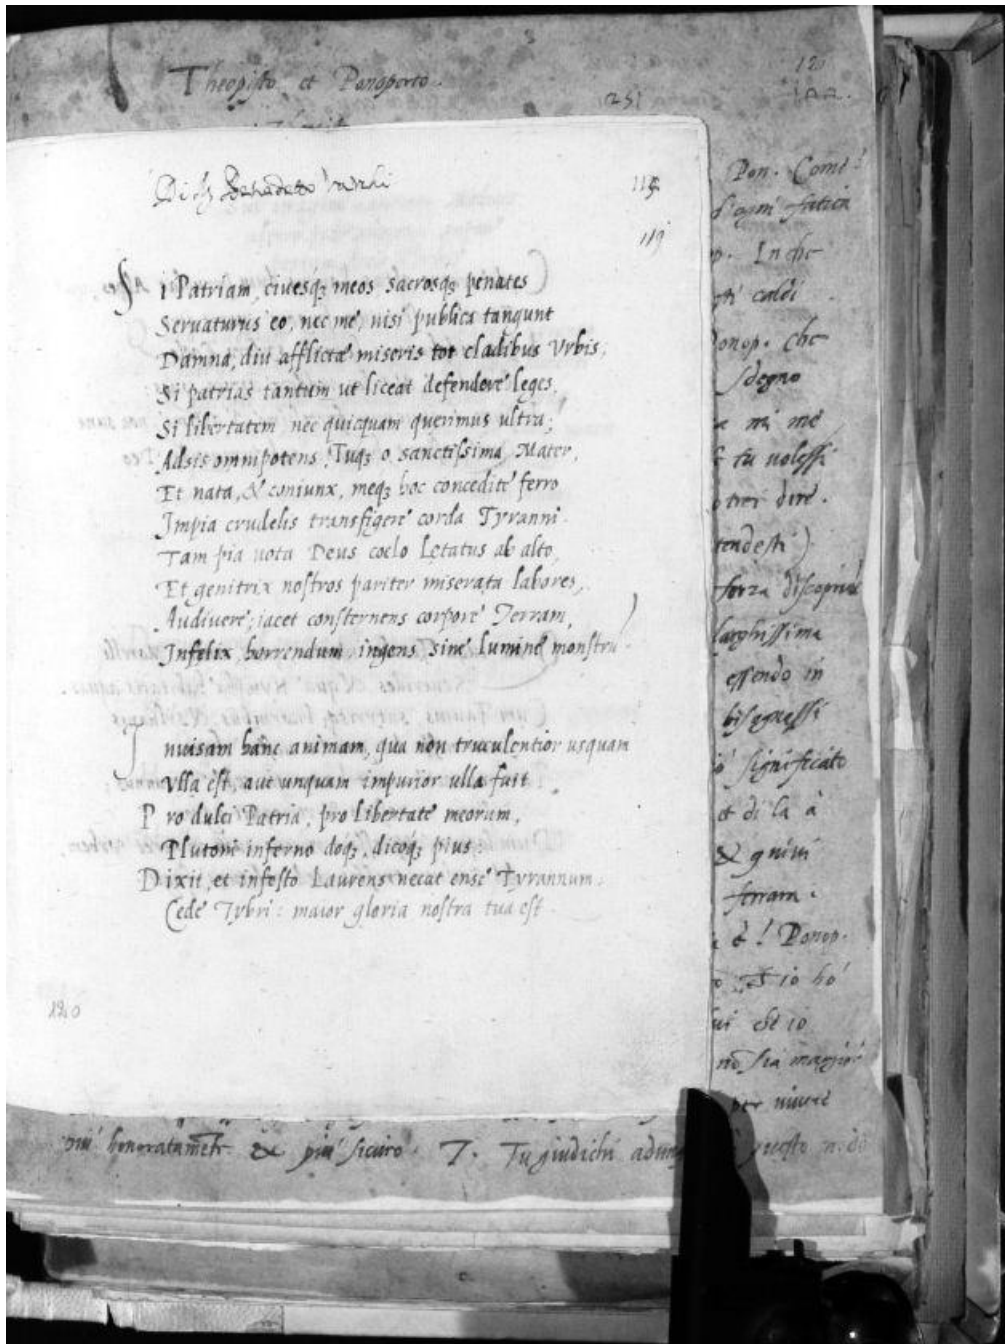 Theopisto et Ponoporto.
120
122.
251
Di Benedeto
119
Si Patriam, ciuesq; meos sacrosq; penates
Seruaturus eo, nec me, nisi publica tangunt
Damna, diu afflictæ miseris tot cladibus Vrbis;
Si patrias tantum ut liceat defendere leges,
Si libertatem nec quicquam querimus ultra;
Adsis omnipotens, Tuq; o sanctissima Mater,
Et nata, & coniunx, meq; hoc concedite ferro
Impia crudelis transfigere corda Tyranni.
Tam pia uota Deus coelo lętatus ab alto,
Et genitrix nostros pariter miserata labores,
Audiuere; iacet consternens corpore Terram,
Infelix, horrendum, ingens sine lumine monstrū.
Inuisam hanc animam, qua non truculentior usquam
Vlla est, aut unquam impurior ulla fuit
Pro dulci Patria, pro libertate meorum,
Plutoni inferno doq;, dicoq; pius;
Dixit, et infesto Laurens necat ense Tyrannum.
Cede Tybri: maior gloria nostra tua est.
Pon. Come
d'ogni fatica
In che
caldi
onop. che
sdegno
mi me
tu uolessi
otrei dire.
tendesti)
forza discoprire
larghissima
essendo in
bisognassi
significato
et di la à
& quiui
ferrara.
è! Ponop.
io hó
che io
nō sia maggior
per uiuere
piu honoratamētē & piu sicuro. T. Tu giudichi adunq questo